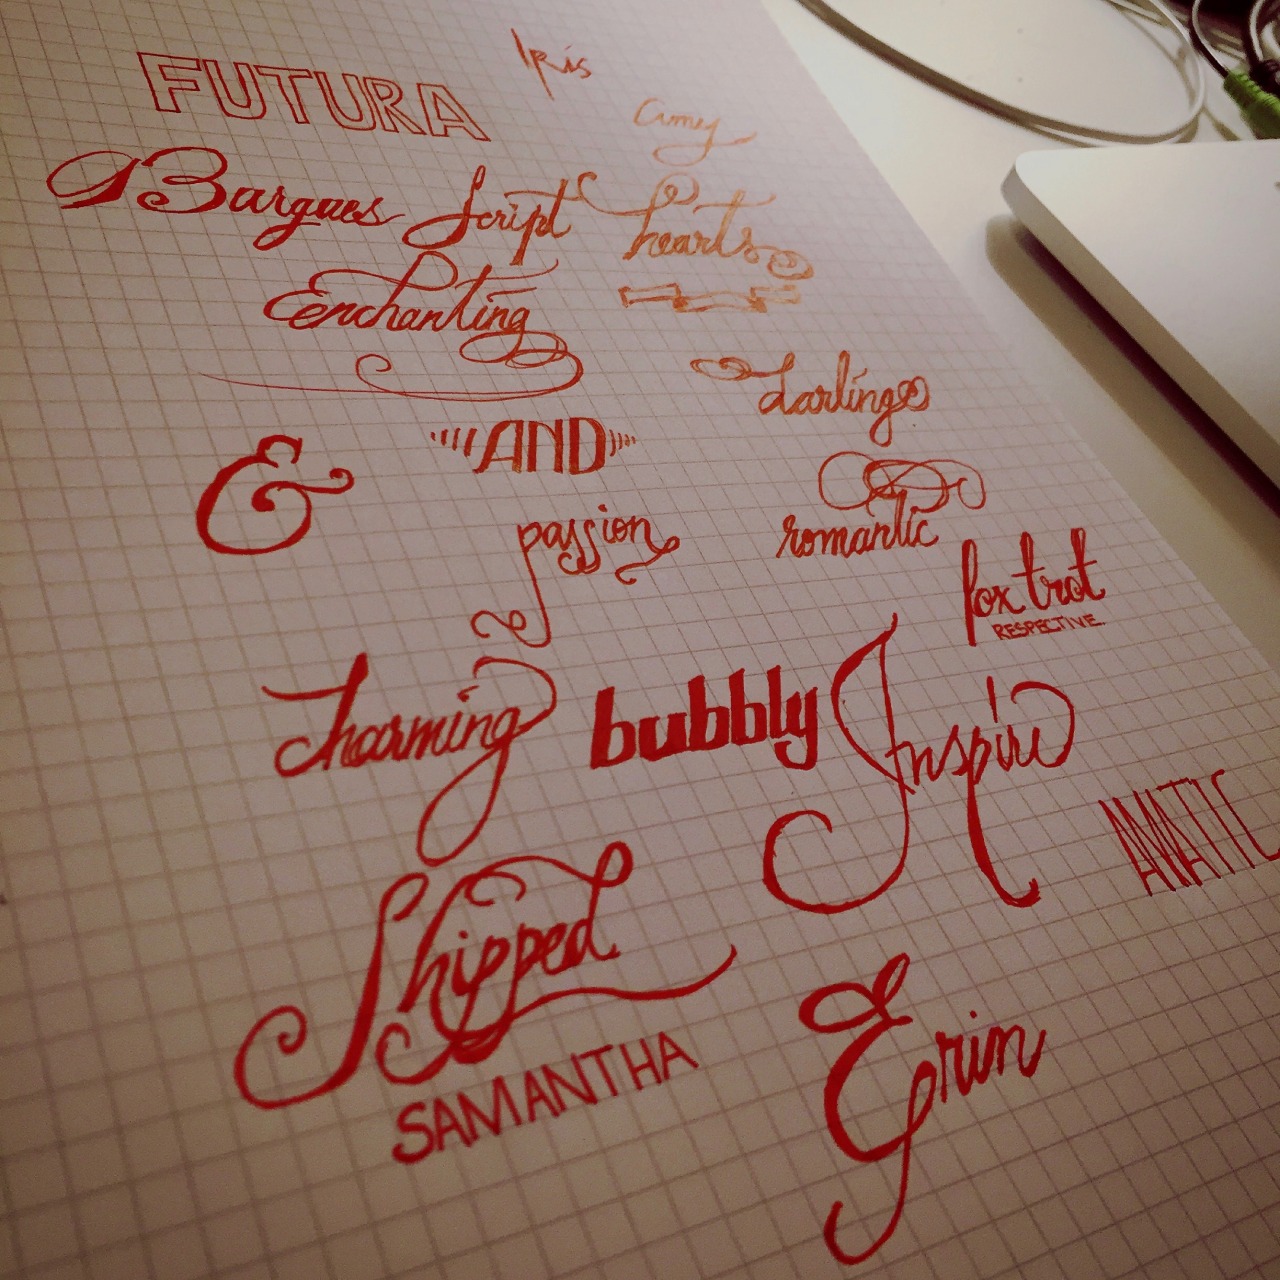 Iris
FUTURA
Amey
Bargues Script
hearts
Enchanting
darling
&
AND
passion
romantic
fox trot
RESPECTIVE
charming
bubbly
Inspire
AMATIC
Shipped
SAMANTHA
Erin